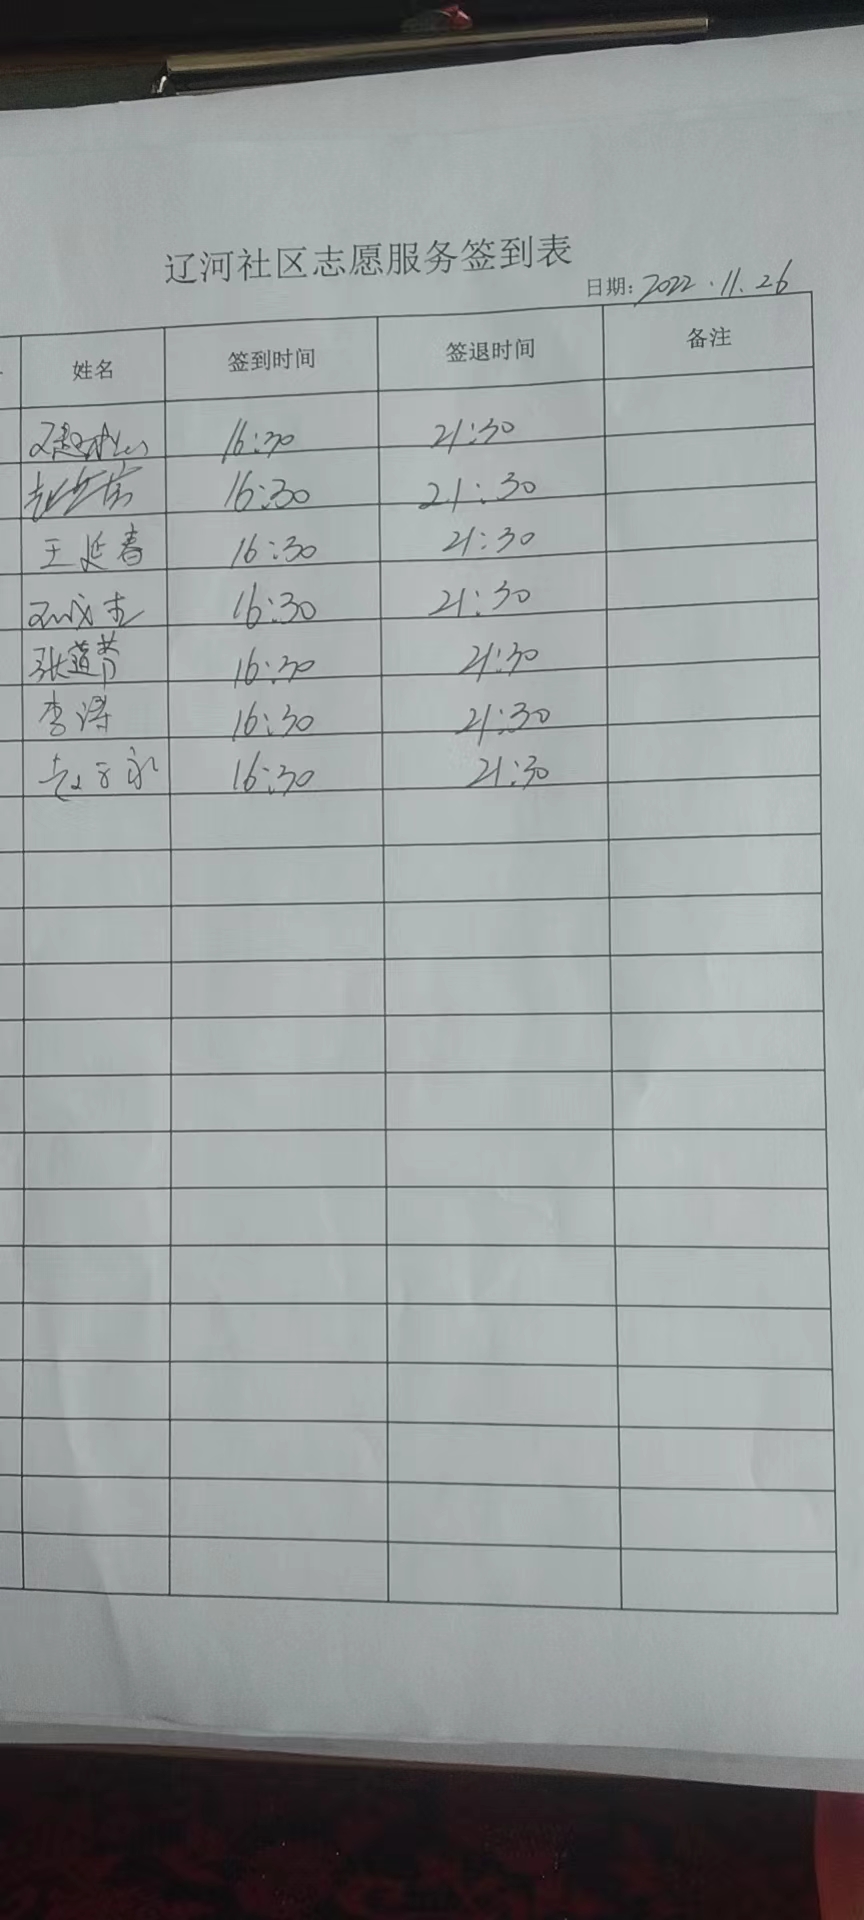 辽河社区志愿服务签到表
日期: 2022.11.26
姓名 签到时间 签退时间 备注
16:30 21:30
16:30 21:30
王延春 16:30 21:30
16:30 21:30
张道芹 16:30 21:30
李涛 16:30 21:30
赵子永 16:30 21:30